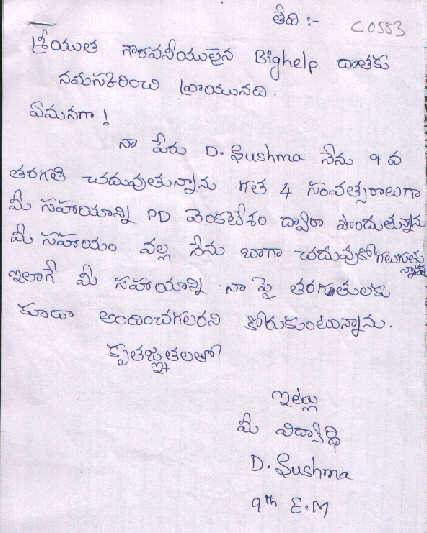 తేది :- C0553
శ్రీయుత గౌరవనీయులైన Bighelp దాతకు
నమస్కరించి వ్రాయునది.
ఏమనగా !
నా పేరు D. Sushma నేను 9 వ
తరగతి చదువుతున్నాను గత 4 సంవత్సరాలుగా
మీ సహాయాన్ని PD వెంకటేశం ద్వారా పొందుతున్నాను
మీ సహాయం వల్ల నేను బాగా చదువుకోగలుగుతున్నాను
ఇలాగే మీ సహాయాన్ని నా పై తరగతులకు
కూడా అందించగలరని కోరుకుంటున్నాను.
కృతజ్ఞతలతో
ఇట్లు
మీ విద్యార్థి
D. Sushma
9th E.M